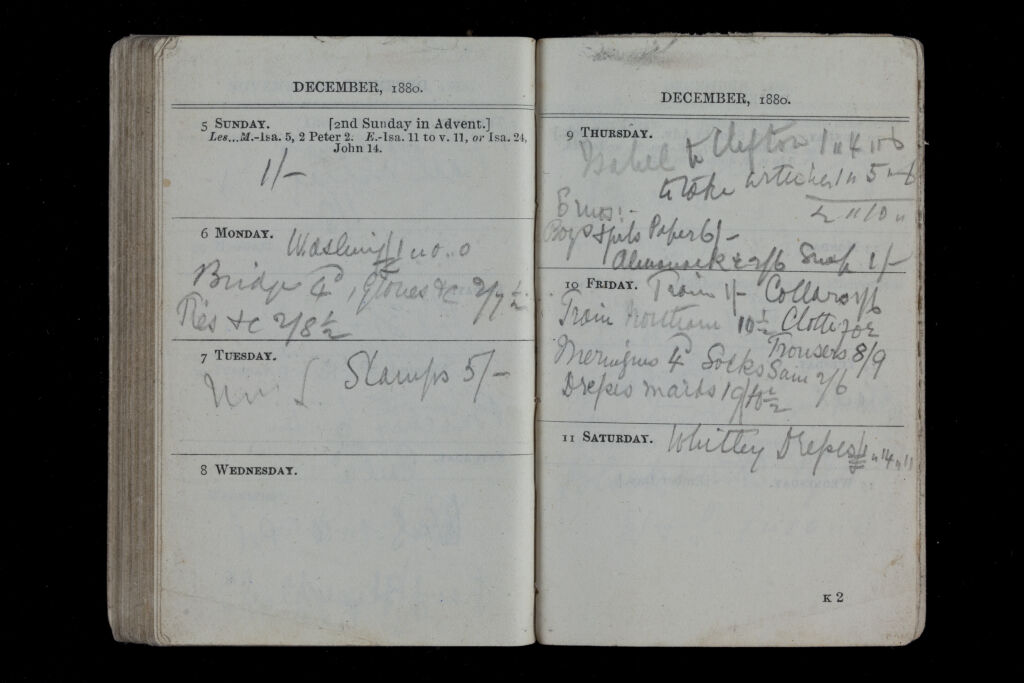 DECEMBER, 1880.
5 SUNDAY. [2nd Sunday in Advent.]
Les...M.-Isa. 5, 2 Peter 2. E.-Isa. 11 to v. 11, or Isa. 24,
John 14.
1/-
6 MONDAY. Washing 1 " 0 " 0
Bridge 4d, gloves &c 2/7½
Ties &c 2/8½
7 TUESDAY.
Stamps 5/-
8 WEDNESDAY.
DECEMBER, 1880.
9 THURSDAY.
Isabel to Clifton 1 " 4 " 6
to take 1 " 5 " 6
2 " 10 "
Boys Paper 6/-
Almanack & 2/6 Soap 1/-
10 FRIDAY. Train 1/- Collars 7/6
Train 10½
Trousers 8/9
4d Socks Sam 2/6
11 SATURDAY. Whitley " 14 " 11
K 2